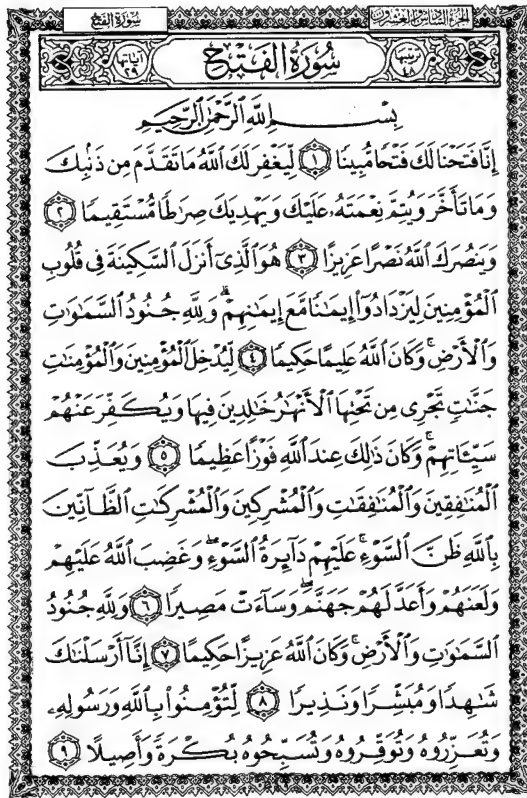 الجزء السادس والعشرون سورة الفتح
ترتيبها ٤٨ سُورَةُ الفَتْحِ آياتها ٢٩
بِسْمِ ٱللَّهِ ٱلرَّحْمَٰنِ ٱلرَّحِيمِ
إِنَّا فَتَحْنَا لَكَ فَتْحًا مُّبِينًا ١ لِّيَغْفِرَ لَكَ ٱللَّهُ مَا تَقَدَّمَ مِن ذَنۢبِكَ
وَمَا تَأَخَّرَ وَيُتِمَّ نِعْمَتَهُۥ عَلَيْكَ وَيَهْدِيَكَ صِرَٰطًا مُّسْتَقِيمًا ٢
وَيَنصُرَكَ ٱللَّهُ نَصْرًا عَزِيزًا ٣ هُوَ ٱلَّذِىٓ أَنزَلَ ٱلسَّكِينَةَ فِى قُلُوبِ
ٱلْمُؤْمِنِينَ لِيَزْدَادُوٓا۟ إِيمَٰنًا مَّعَ إِيمَٰنِهِمْ ۗ وَلِلَّهِ جُنُودُ ٱلسَّمَٰوَٰتِ
وَٱلْأَرْضِ ۚ وَكَانَ ٱللَّهُ عَلِيمًا حَكِيمًا ٤ لِّيُدْخِلَ ٱلْمُؤْمِنِينَ وَٱلْمُؤْمِنَٰتِ
جَنَّٰتٍ تَجْرِى مِن تَحْتِهَا ٱلْأَنْهَٰرُ خَٰلِدِينَ فِيهَا وَيُكَفِّرَ عَنْهُمْ
سَيِّـَٔاتِهِمْ ۚ وَكَانَ ذَٰلِكَ عِندَ ٱللَّهِ فَوْزًا عَظِيمًا ٥ وَيُعَذِّبَ
ٱلْمُنَٰفِقِينَ وَٱلْمُنَٰفِقَٰتِ وَٱلْمُشْرِكِينَ وَٱلْمُشْرِكَٰتِ ٱلظَّآنِّينَ
بِٱللَّهِ ظَنَّ ٱلسَّوْءِ ۚ عَلَيْهِمْ دَآئِرَةُ ٱلسَّوْءِ ۖ وَغَضِبَ ٱللَّهُ عَلَيْهِمْ
وَلَعَنَهُمْ وَأَعَدَّ لَهُمْ جَهَنَّمَ ۖ وَسَآءَتْ مَصِيرًا ٦ وَلِلَّهِ جُنُودُ
ٱلسَّمَٰوَٰتِ وَٱلْأَرْضِ ۚ وَكَانَ ٱللَّهُ عَزِيزًا حَكِيمًا ٧ إِنَّآ أَرْسَلْنَٰكَ
شَٰهِدًا وَمُبَشِّرًا وَنَذِيرًا ٨ لِّتُؤْمِنُوا۟ بِٱللَّهِ وَرَسُولِهِۦ
وَتُعَزِّرُوهُ وَتُوَقِّرُوهُ وَتُسَبِّحُوهُ بُكْرَةً وَأَصِيلًا ٩